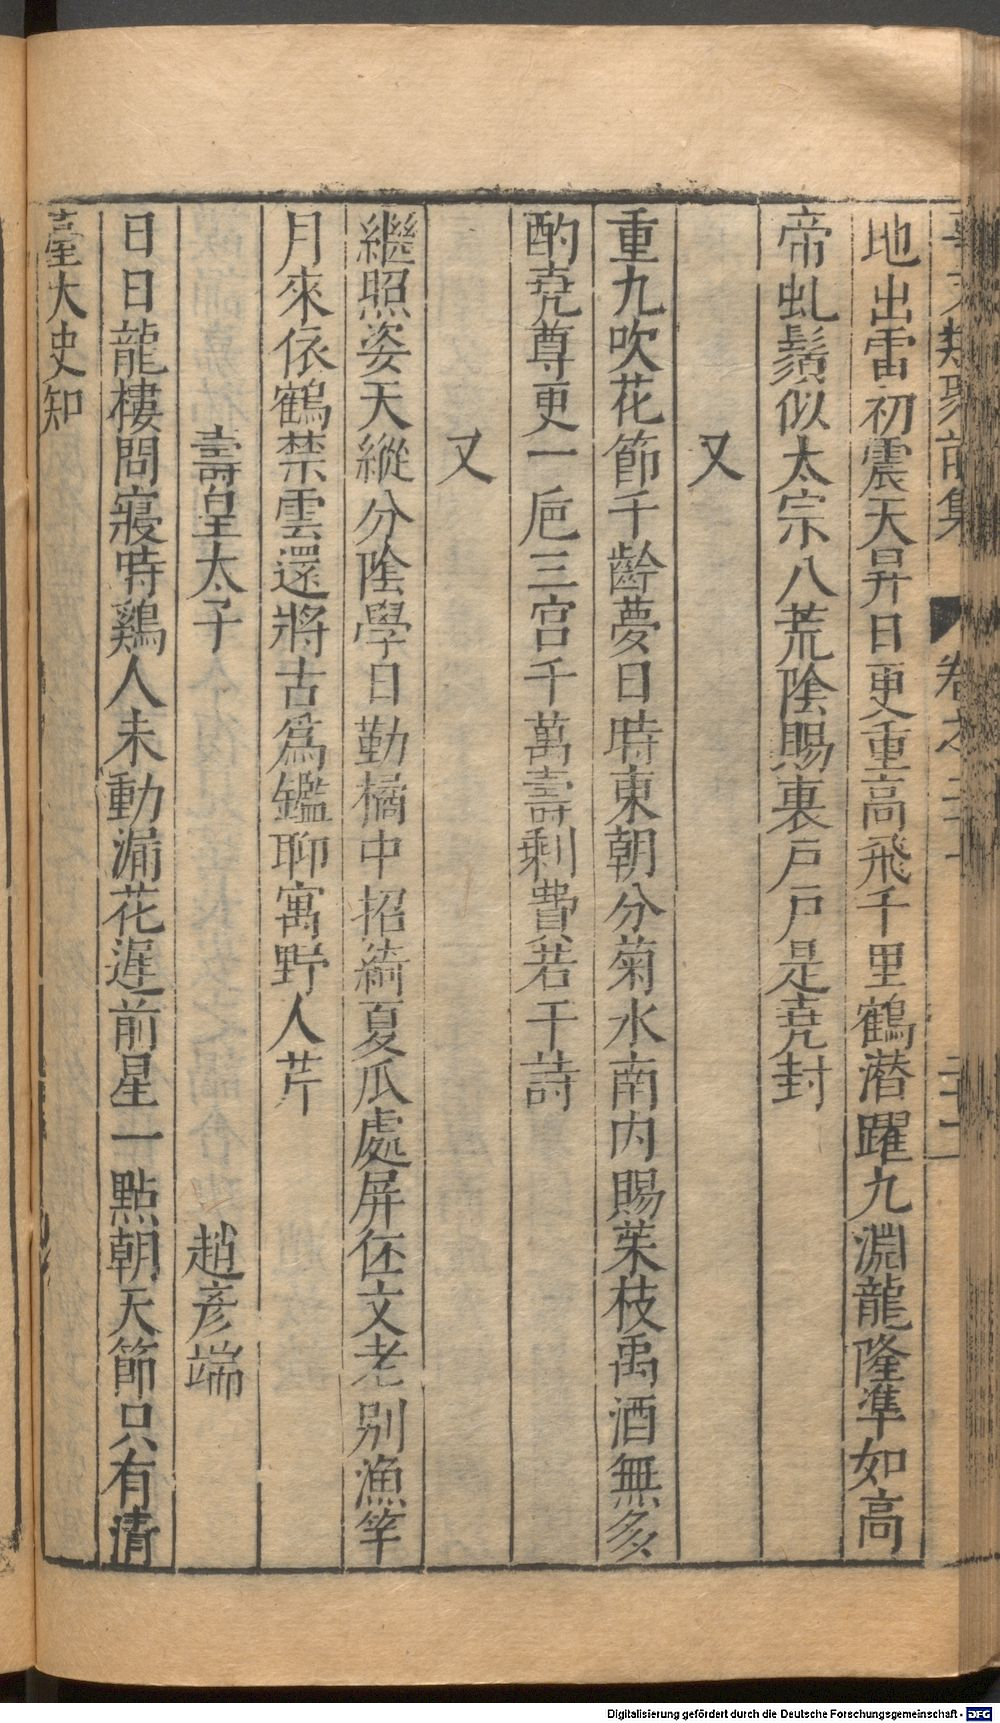 事文類聚前集 卷之二十 二十二
地出雷初震天昇日更重高飛千里鶴潜躍九淵龍隆準如高
帝虬鬚似太宗八荒陰賜裏戸戸是堯封
又
重九吹花節千齡夢日時東朝分菊水南内賜茱枝禹酒無多
酌堯尊更一巵三宮千萬壽剰費若干詩
又
繼照姿天縱分陰學日勤橘中招綺夏瓜處屏伾文老别漁竿
月來依鶴禁雲還將古爲鑑聊寓野人芹
壽皇太子 趙彦端
日日龍樓問寢時鷄人未動漏花遲前星一點朝天節只有清
臺大史知
Digitalisierung gefördert durch die Deutsche Forschungsgemeinschaft - DFG